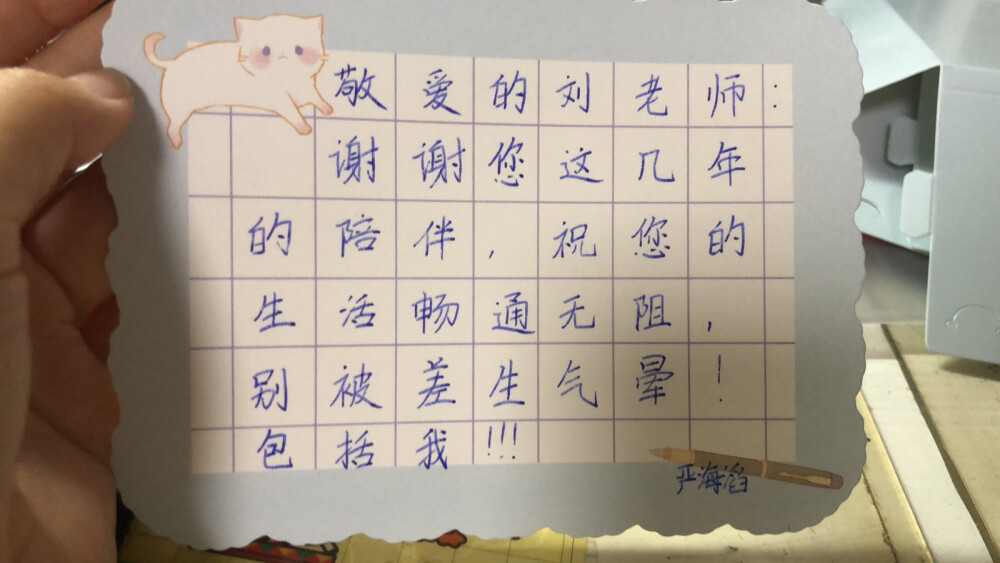 敬爱的刘老师：
谢谢您这几年
的陪伴，祝您的
生活畅通无阻，
别被差生气晕！
包括我!!!
严海滔